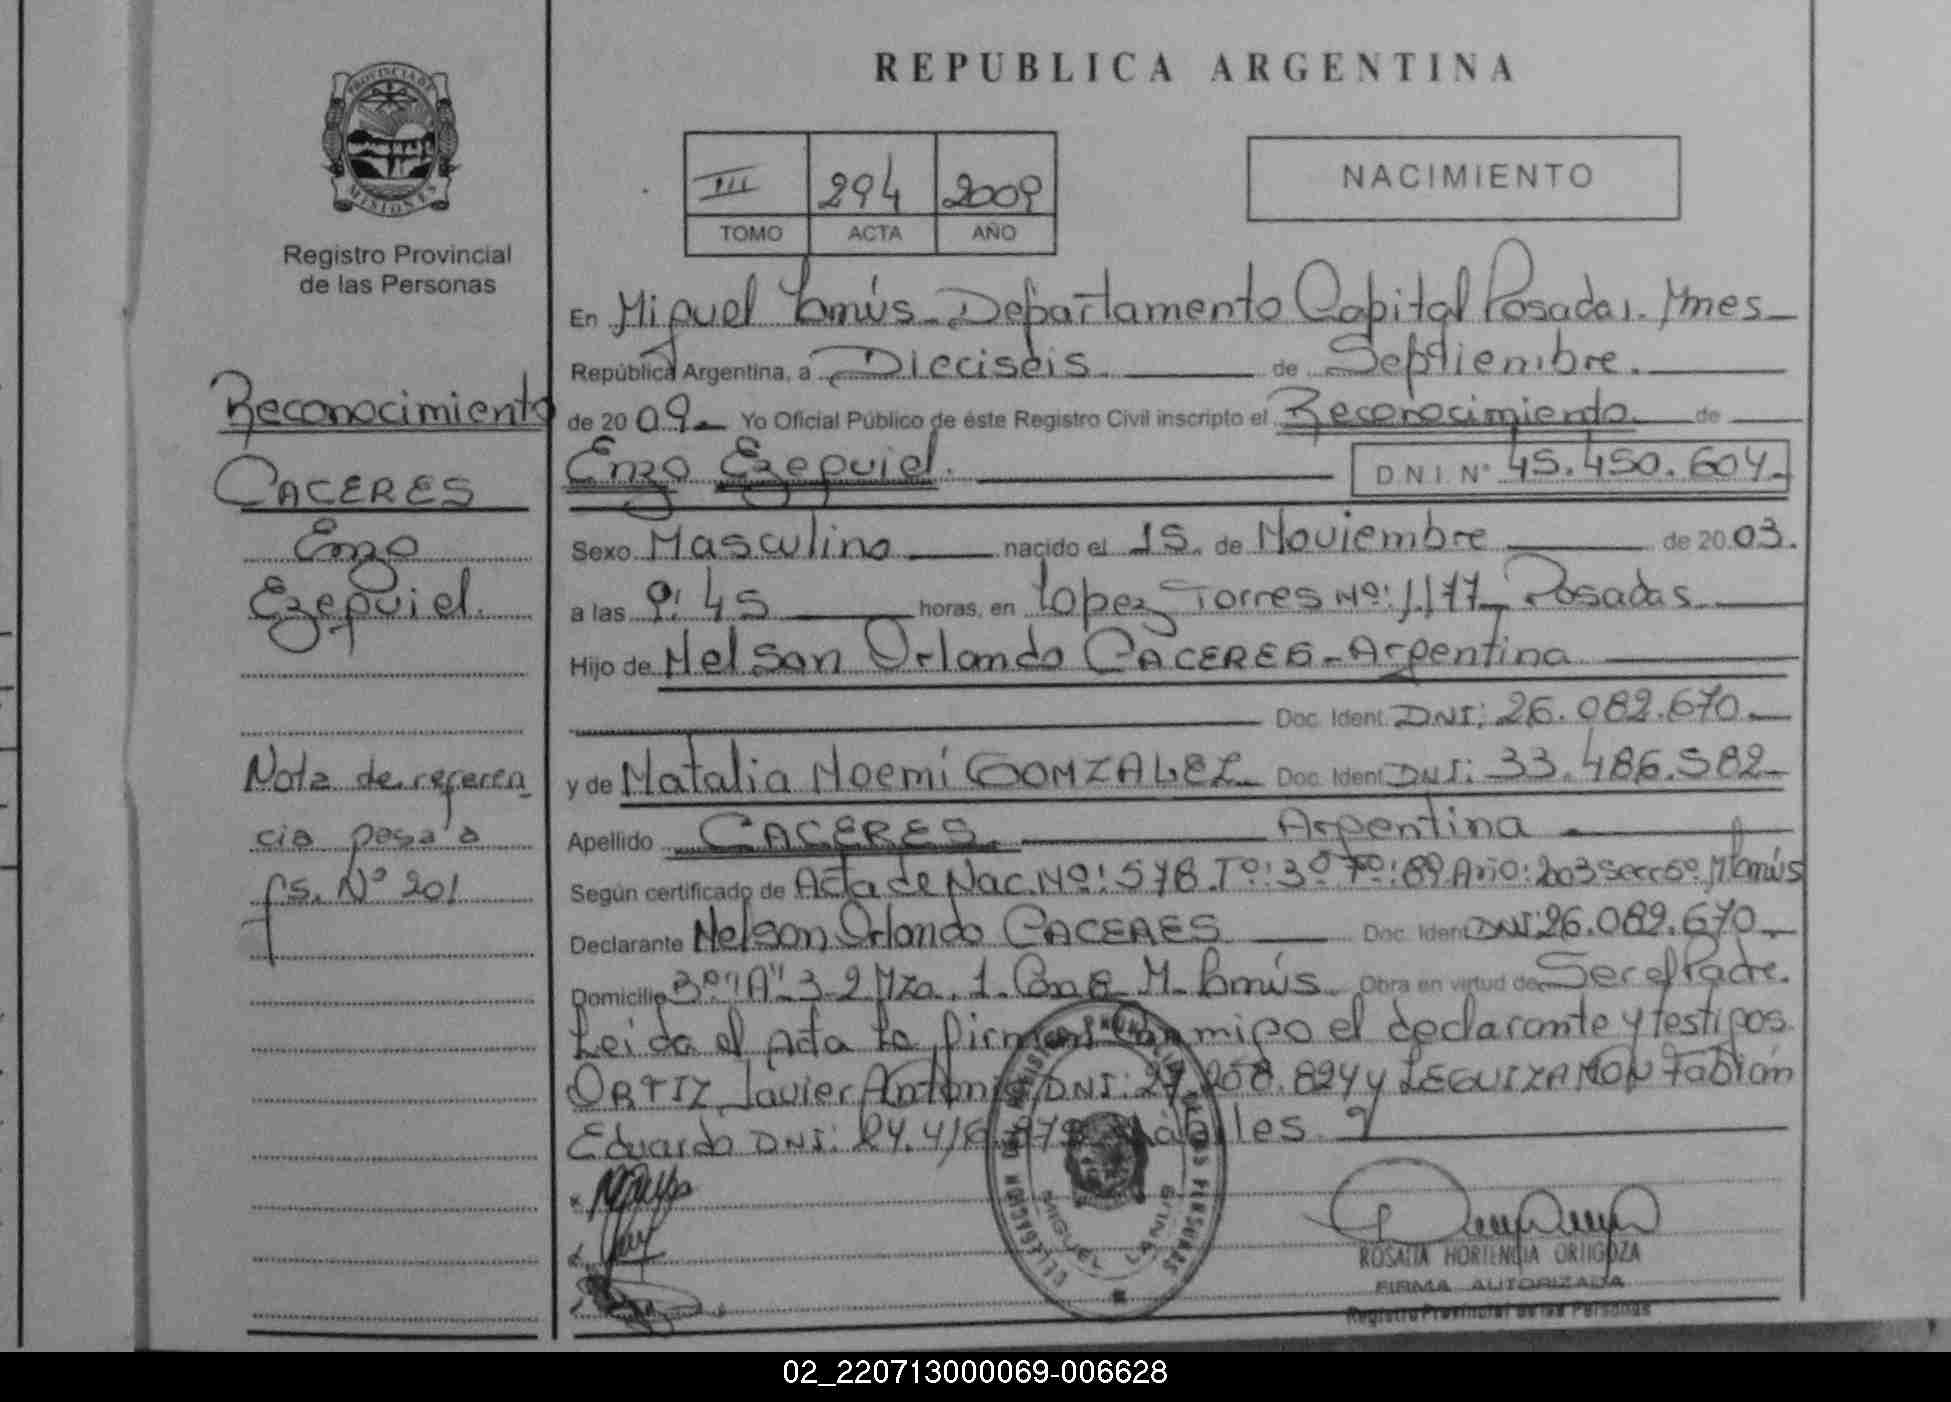 REPUBLICA ARGENTINA
PROVINCIA DE
MISIONES
Registro Provincial
de las Personas
III 294 2009
TOMO ACTA AÑO
NACIMIENTO
En Miguel Lanús - Departamento Capital Posadas. Mnes
República Argentina, a Dieciseis de Septiembre.
de 2009 Yo Oficial Público de éste Registro Civil inscripto el Reconocimiento de
Enzo Ezequiel. D.N.I. N° 45.450.604.
Sexo Masculino nacido el 15. de Noviembre de 2003.
a las 9:45 horas, en Lopez Torres Nº: 1177 Posadas
Hijo de Nelson Orlando CACERES - Argentina
Doc. Ident. DNI: 26.082.670.
y de Natalia Noemí GONZALEZ Doc. Ident. DNI: 33.486.582
Apellido CACERES. Argentina
Según certificado de Acta de Nac. Nº: 578. Tº: 3º Fº: 89 Año: 2003 Secc 5º M Lanús
Declarante Nelson Orlando CACERES Doc. Ident DNI 26.082.670.
Domicilio 3º "A" 3-2 Mza. 1. M. Lanús. Obra en virtud de Ser el Padre.
Leida el Acta la firman conmigo el declarante y testigos
ORTIZ Javier Antonio DNI: 27. .824 y LEGUIZAMON Fabián
Eduardo DNI: 24.416. hábiles
Reconocimiento
CACERES
Enzo
Ezequiel.
Nota de referen
cia pasa a
fs. Nº 201
MIGUEL LANUS
ROSALIA HORTENCIA ORTIGOZA
FIRMA AUTORIZADA
Registro Provincial de las Personas
02_220713000069-006628